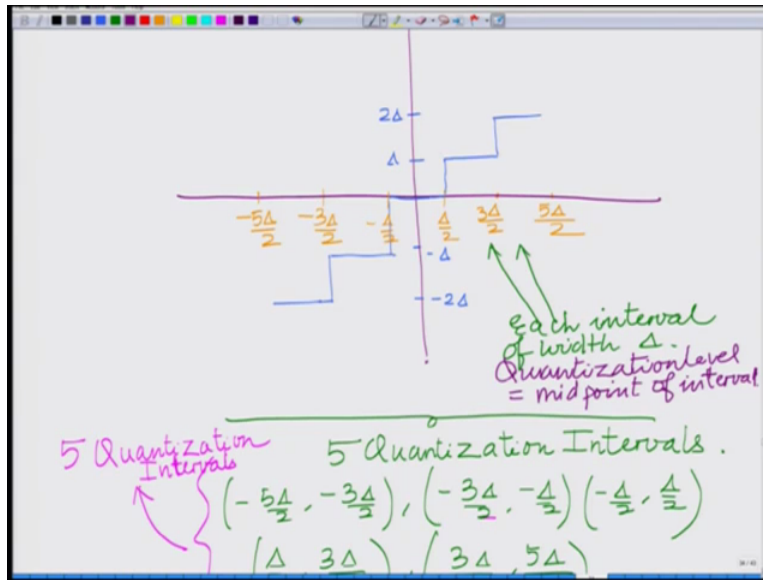 2Δ
Δ
-5Δ/2 -3Δ/2 -Δ/2 Δ/2 3Δ/2 5Δ/2
-Δ
-2Δ
each interval
of width Δ.
Quantization level
= midpoint of interval
5 Quantization
Intervals
5 Quantization Intervals.
(-5Δ/2, -3Δ/2), (-3Δ/2, -Δ/2) (-Δ/2, Δ/2)
(Δ, 3Δ), (3Δ, 5Δ)